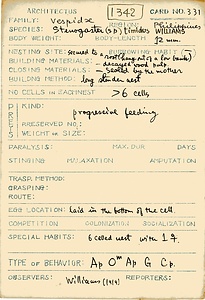 ARCHITECTUS 1342 CARD NO. 331
FAMILY: Vespidæ REGION: Philippines
SPECIES: Stenogaster (sp) timidus WILLIAMS
BODY WEIGHT: BODY-LENGTH 12 mm.
NESTING SITE: seemed to a BURROWING HABIT
BUILDING MATERIALS: decayed wood pulp
CLOSING MATERIALS: — sealed by the mother
BUILDING METHOD: long slender nest
NO CELLS IN EACH NEST >6 cells
PREY KIND: progressive feeding
PRESERVED NO.:
WEIGHT OR SIZE:
PARALYSIS: MAX. DUR. DAYS
STINGING MALAXATION AMPUTATION
TRANSP. METHOD:
GRASPING:
ROUTE:
EGG LOCATION: laid in the bottom of the cell
COMPETITION COLONIZATION SOCIALIZATION
SPECIAL HABITS: 6 celled nest with 1 ♀.
TYPE OF BEHAVIOR: Ap Oᵐ Ap G Cp.
OBSERVERS: Williams (1919) REPORTERS: